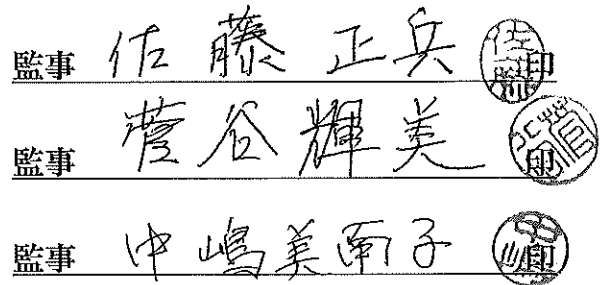 監事 佐藤正兵 印
監事 菅谷輝美 印
監事 中嶋美南子 印